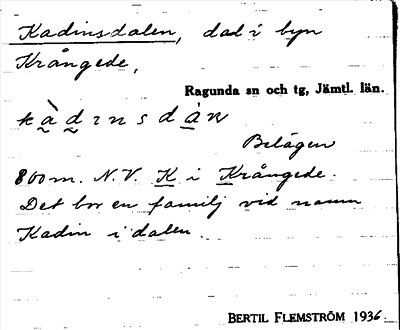 Kadinsdalen, dal i byn
Krångede,
Ragunda sn och tg, Jämtl. län.
Belägen
800 m. N.V. K i Krångede.
Det bor en familj vid namn
Kadin i dalen.
BERTIL FLEMSTRÖM 1936.